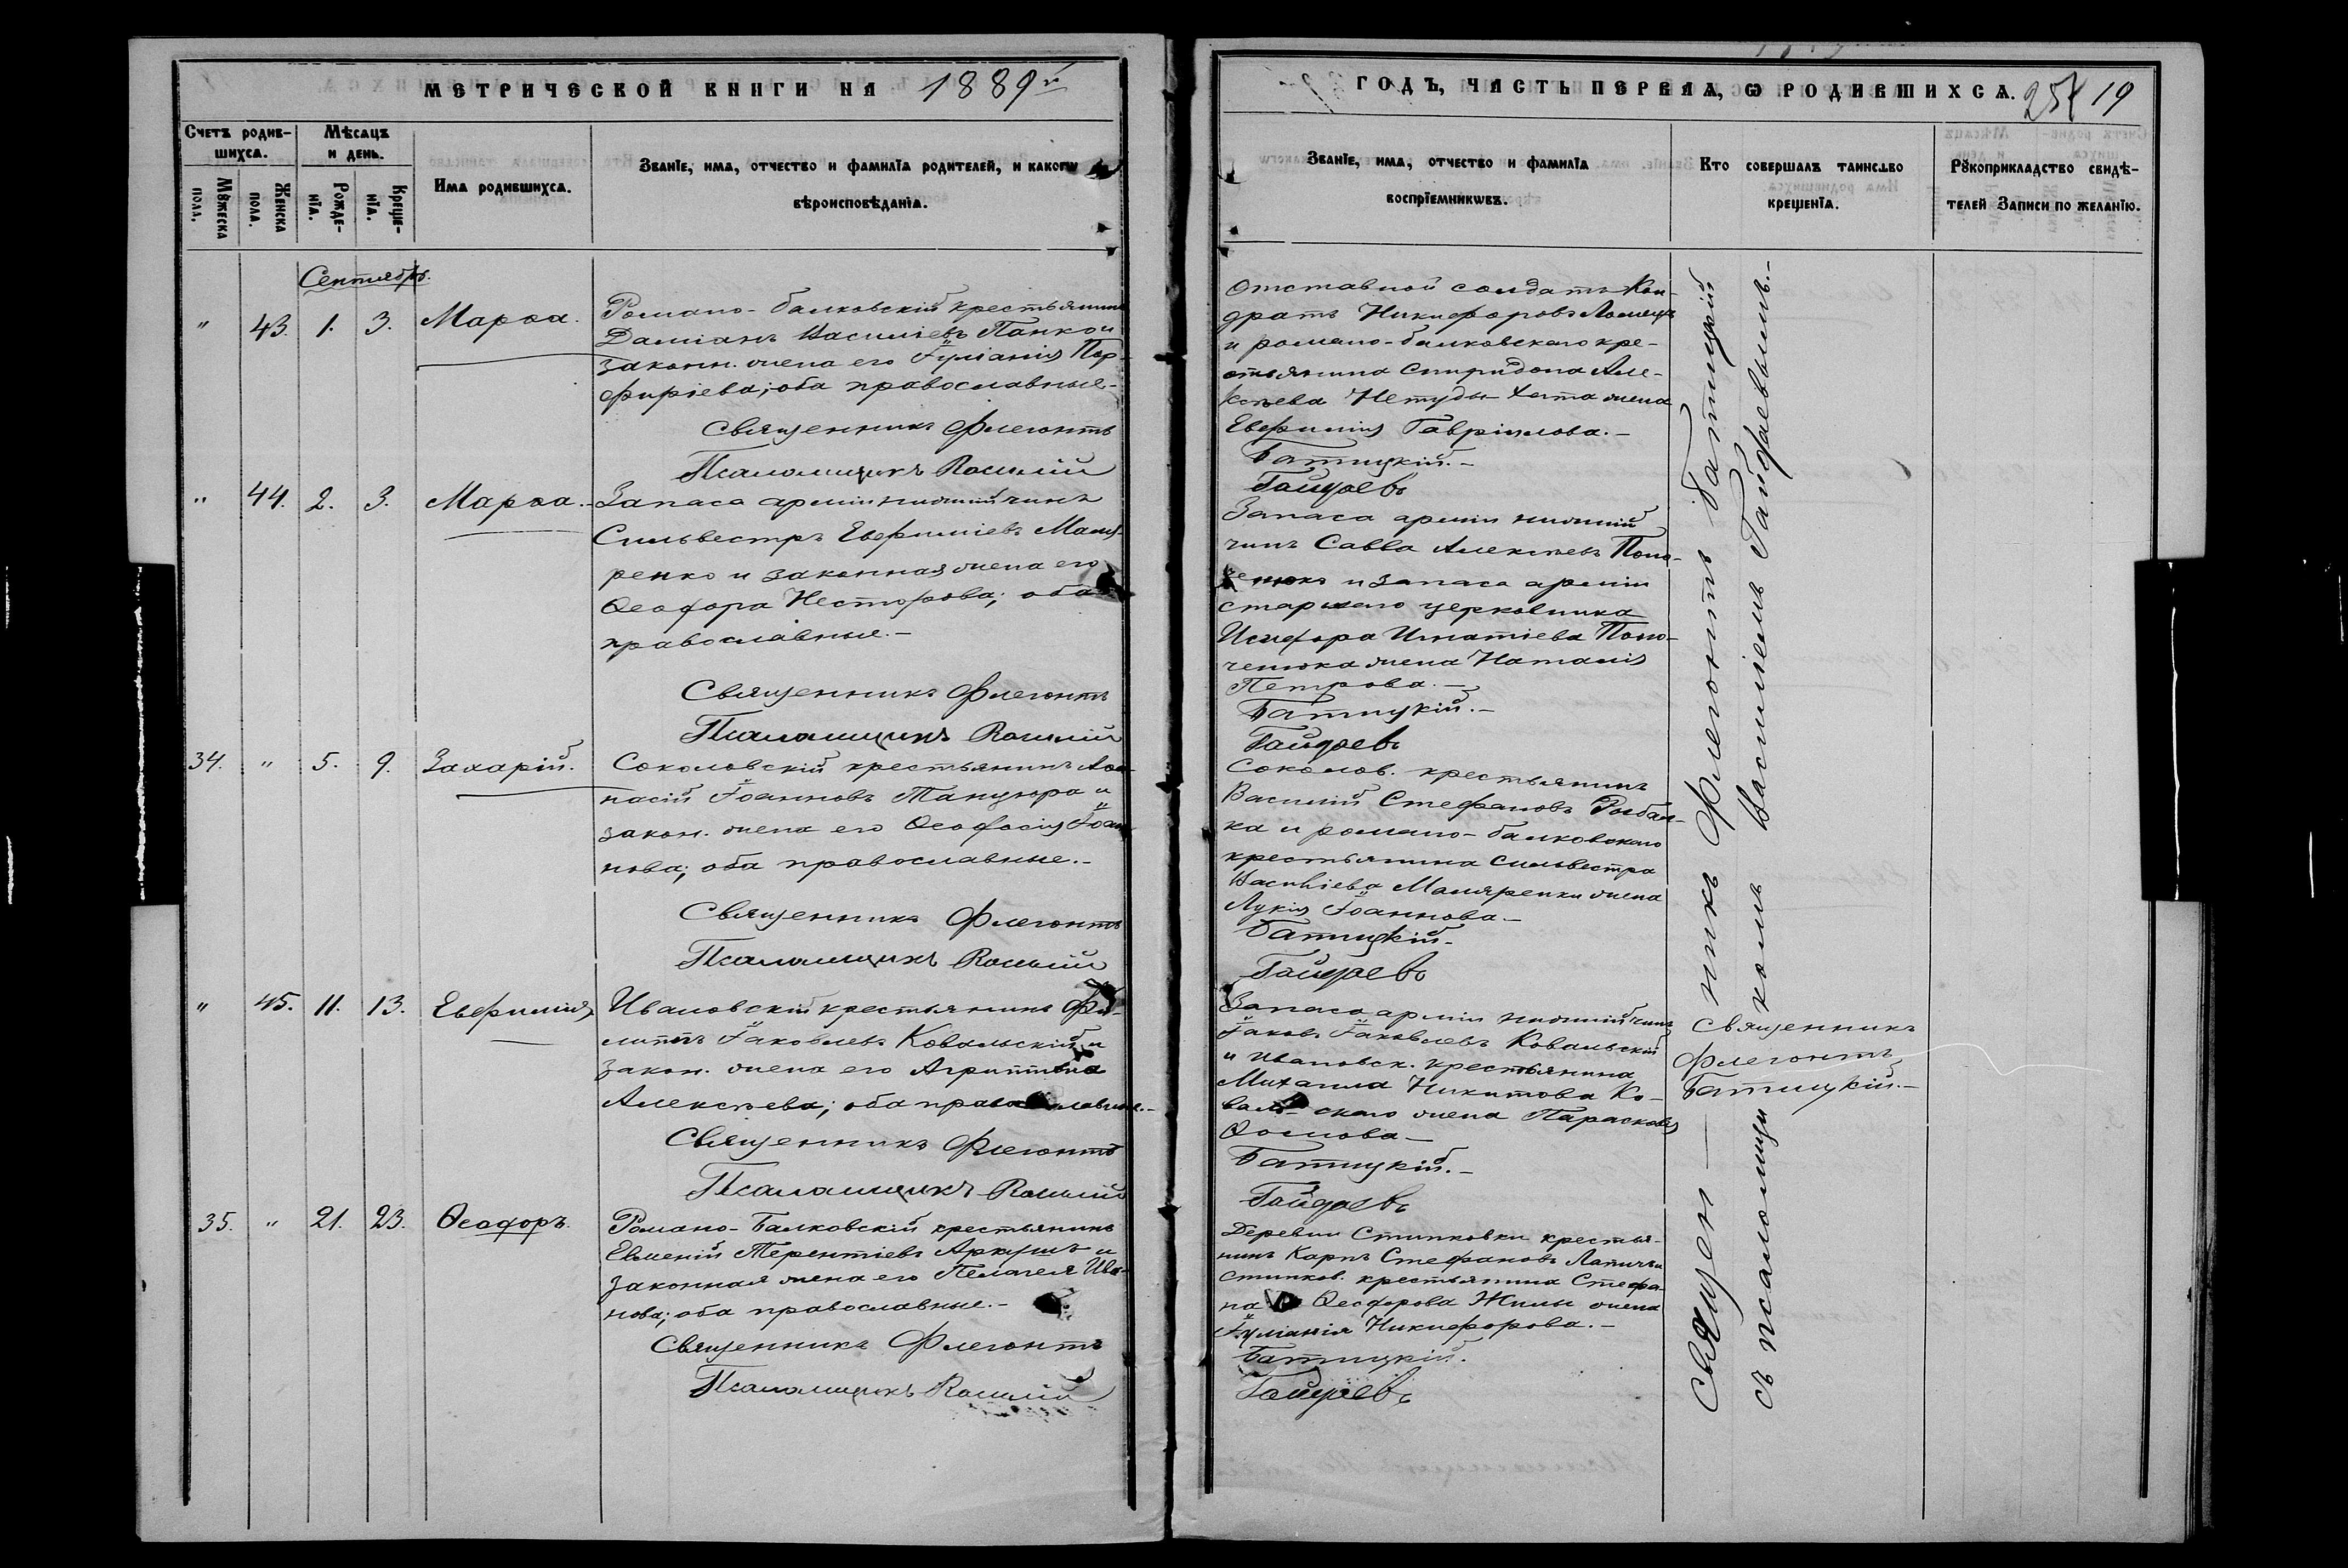 МЕТРИЧЕСКОЙ КНИГИ НА 1889й
Счетъ родив-
шихся.
Мѣсяцъ
и день.
Мꙋжеска
пола.
Женска
пола.
Рожде-
нїа.
Креще-
нїа.
Има родившихса.
Званїе, има, отчество и фамилїа родителей, и какогѡ
вѣроисповѣданїа.
Сентябрь.
" 43. 1. 3. Марѳа.
Романо-балковскій крестьянинъ
Даміанъ Василіевъ Панко и
законн. жена его Іуліанія Пор-
фиріева; оба православные.-
Священникъ Флегонтъ
Псаломщикъ Василій
" 44. 2. 3. Марѳа.
Запаса арміи нижній чинъ
Сильвестръ Евфиміевъ Маля-
ренко и законная жена его
Ѳеодора Несторова; оба
православные.-
Священникъ Флегонтъ
Псаломщикъ Василій
34. " 5. 9. Захарій.
Соколовскій крестьянинъ Аѳа-
насій Іоанновъ Танцюра и
закон. жена его Ѳеодосія Іоан-
нова; оба православные.-
Священникъ Флегонтъ
Псаломщикъ Василій
" 45. 11. 13. Евфимія
Ивановскій крестьянинъ Фи-
липпъ Іаковлевъ Ковальскій и
закон. жена его Агриппина
Алексѣева; оба православные.-
Священникъ Флегонтъ
Псаломщикъ Василій
35. " 21. 23. Ѳеодоръ.
Романо-Балковскій крестьянинъ
Евменій Терентіевъ Аркушъ и
законная жена его Пелагея Ива-
нова; оба православные.-
Священникъ Флегонтъ
Псаломщикъ Василій
ГОДЪ, ЧАСТЬ ПЕРВАЯ, Ѡ РОДИВШИХСѦ. 254 19
Званїе, има, отчество и фамилїа
воспрїемникѡвъ.
Кто совершалъ таинство
крещенїа.
Рꙋкоприкладство свидѣ-
телей Записи по желанїю.
Отставной солдатъ Кон-
дратъ Никифоровъ
и романо-балковскаго кре-
стьянина Спиридона Але-
ксѣева Нетуды-хата жена
Евфимія Гавріилова.-
Батицкій.-
Гайдаевъ
Запаса арміи нижній
чинъ Савва Алексѣевъ
и запаса арміи
старшаго церковника
Исидора Игнатіева
жена Наталія
Петрова.-
Батицкій.-
Гайдаевъ
Соколов. крестьянинъ
Василій Стефановъ Рыбал-
ка и романо-балковскаго
крестьянина Сильвестра
Василіева Маляренки жена
Лукія Іоаннова.-
Батицкій.-
Гайдаевъ
Запаса арміи нижній чинъ
Іаковъ Іаковлевъ Ковальскій
и ивановск. крестьянина
Михаила Никитова Ко-
вальскаго жена Параскева
Ѳомова-
Батицкій.-
Гайдаевъ
Деревни Стипковки крестья-
нинъ Карпъ Стефановъ
стипков. крестьянина Стефа-
на Ѳеодорова Жилы жена
Іуліанія Никифорова.-
Батицкій.
Гайдаевъ
Священникъ Флегонтъ Батицкій
съ псаломщикомъ Василіемъ Гайдаевымъ.-
Священникъ
Флегонтъ
Батицкій.-